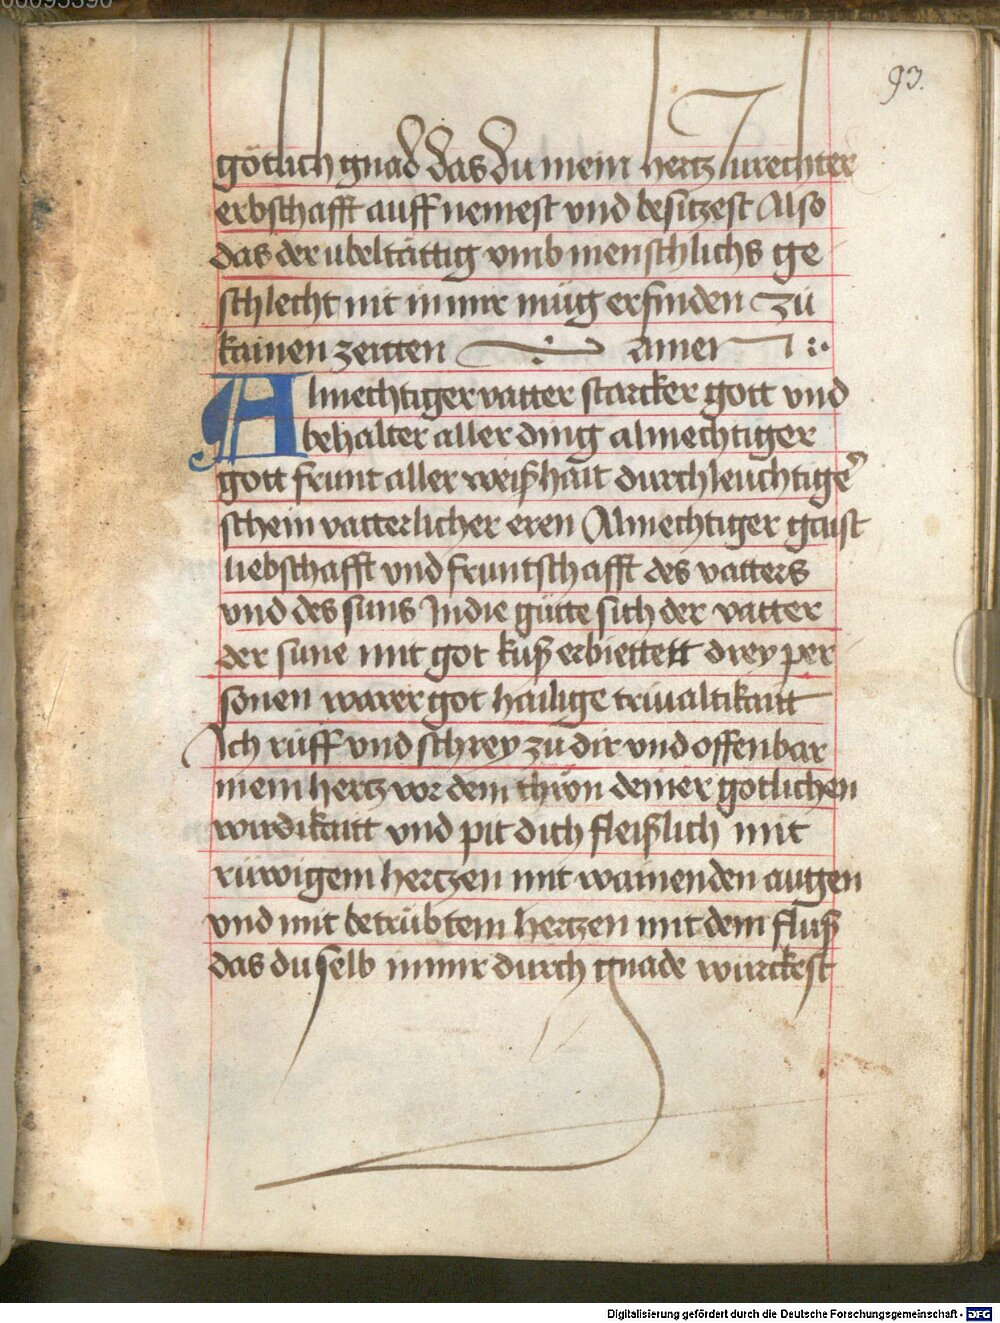 93.
götlich gnad das du mein hertz zu rechter
erbschafft auff nemest vnd besitzest Also
das der ubeltättig vmb menschlichs ge
schlecht nit in mir müg erfinden Zü
kainen zeitten amen
Almechtiger vatter starcker gott vnd
behalter aller ding almechtiger
gott frunt aller weißhait durchleuchtiger
schein vatterlicher eren Almechtiger gaist
liebschafft vnd fruntschafft des vatters
vnd des suns In die gütte sich der vatter
der sune mit got kuß erbiettett drey per
sonen warer got hailige triualtikaitt
Ich rüff vnd schrey zu dir vnd offenbar
mein hertz vor dem thron deiner gotlichen
wirdikaitt vnd pit dich fleißlich mit
rüwigem hertzen mit wainenden augen
vnd mit betrübtem hertzen mit dem fluß
das du selb in mir durch gnade würckest
Digitalisierung gefördert durch die Deutsche Forschungsgemeinschaft - DFG